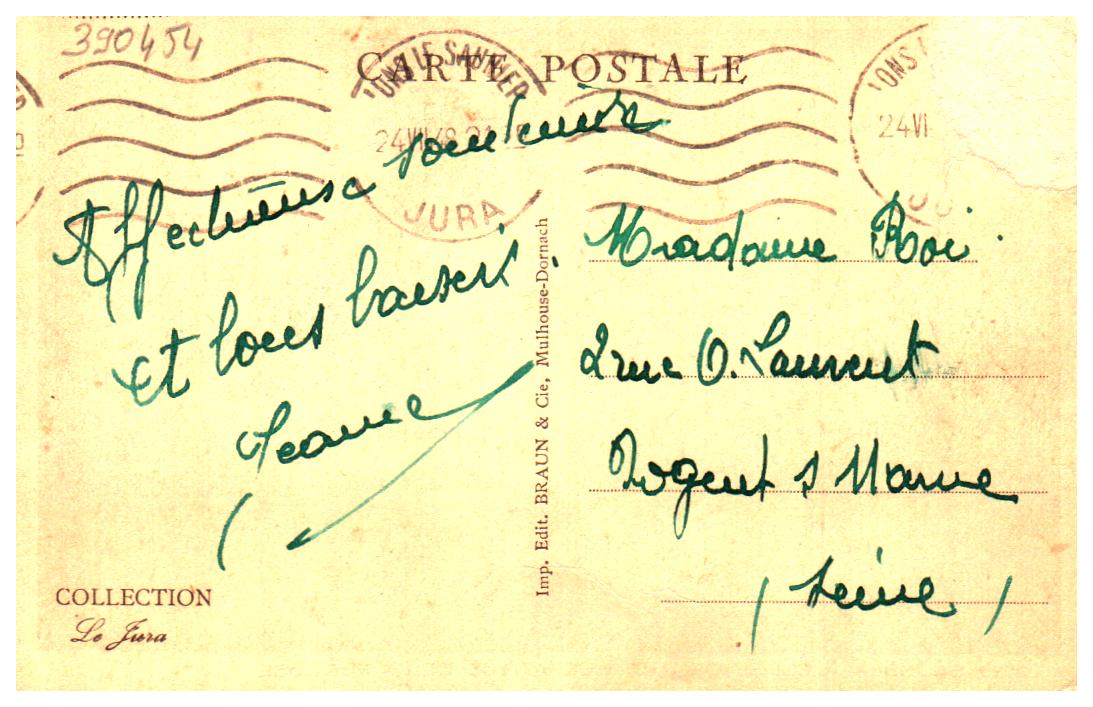 390454
CARTE POSTALE
LONS LE SAUNIER
JURA
LONS
24 VI
Affectueux souvenir
et bons baisers.
Jeanne
Madame Roi.
2 rue O. Laurent
Nogent s Marne
(Seine)
Imp. Edit. BRAUN & Cie, Mulhouse-Dornach
COLLECTION
Le Jura